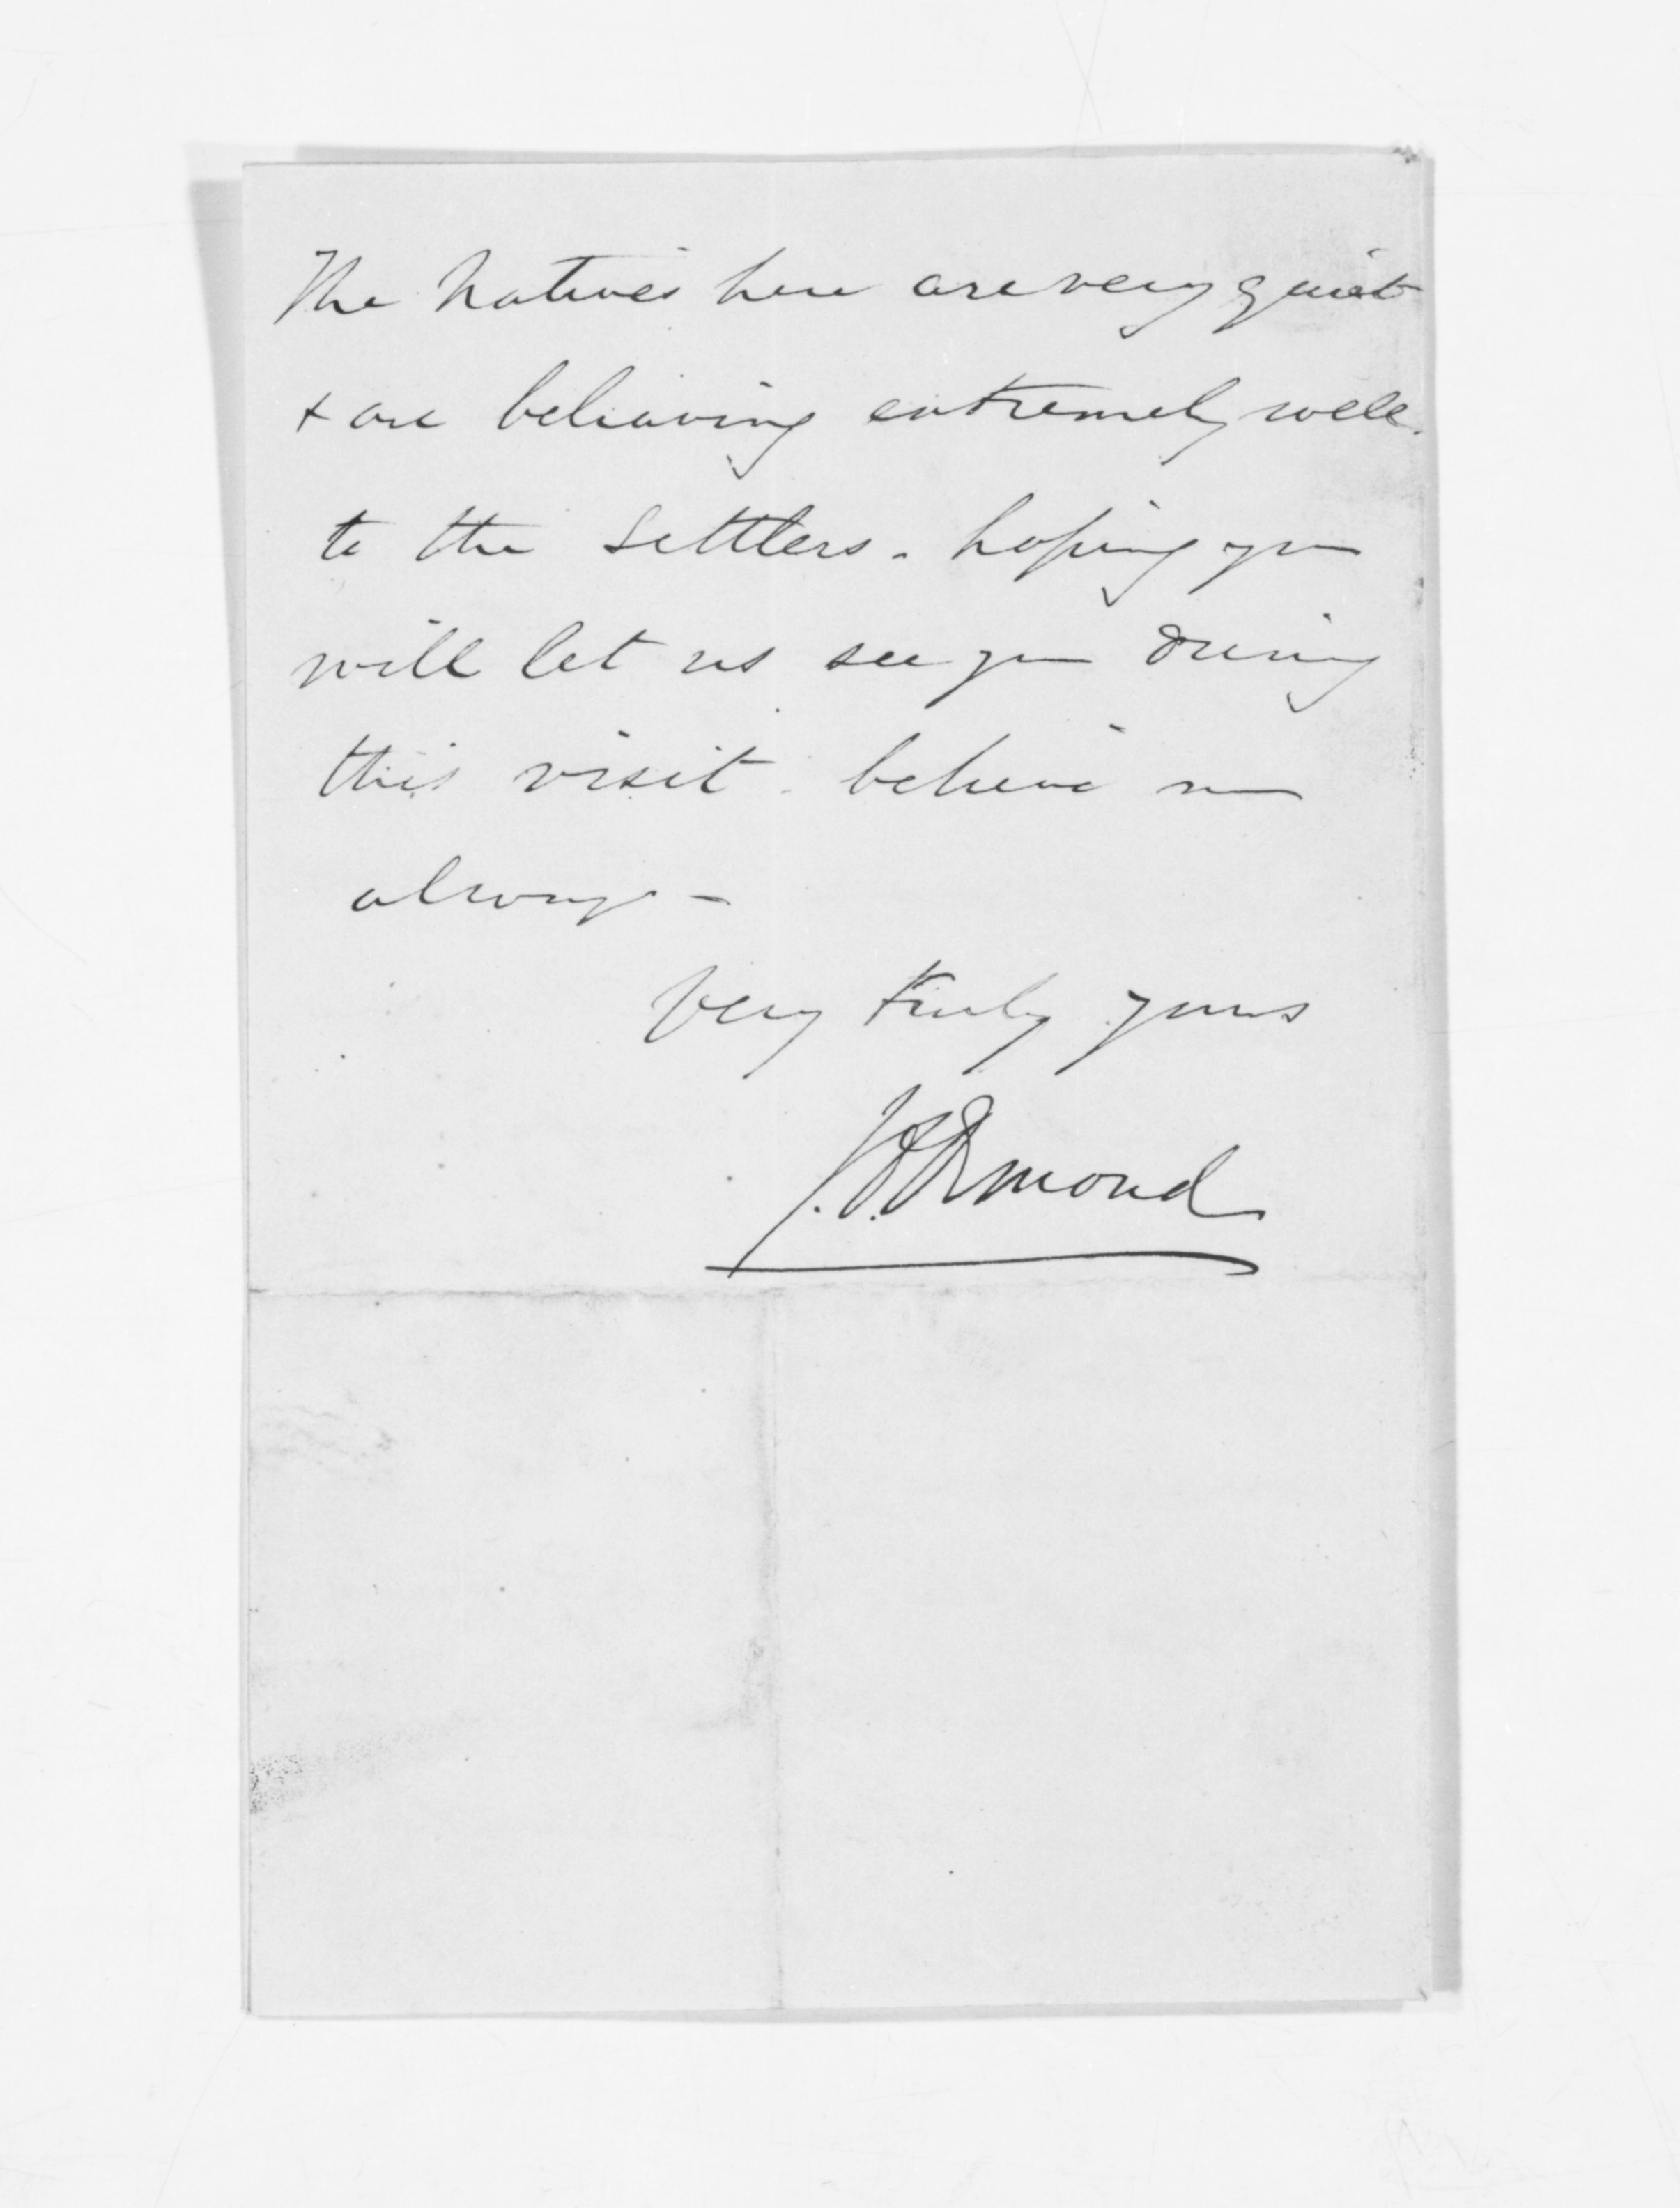 The Natives here are very quiet
+ are behaving extremely well.
to the Settlers. hoping you
will let us see you during
this visit. believe me
always -
Very truly yours
J.D. Ormond